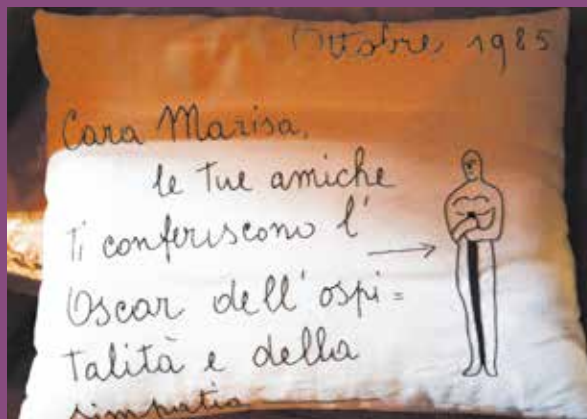 Ottobre, 1985
Cara Marisa,
le tue amiche
Ti conferiscono l'
Oscar dell'ospi=
talità e della
simpatia